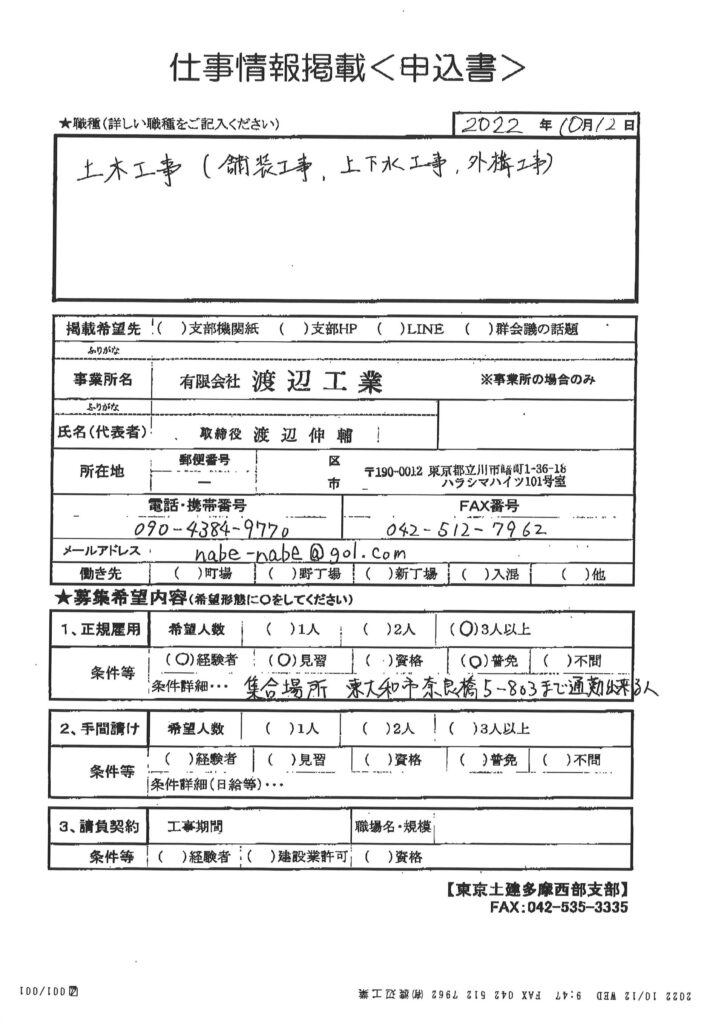 仕事情報掲載<申込書>
★職種(詳しい職種をご記入ください) 2022 年 10月12日
土木工事 (舗装工事, 上下水工事, 外構工事)
掲載希望先 ( )支部機関紙 ( )支部HP ( )LINE ( )群会議の話題
ふりがな
事業所名 有限会社 渡辺工業 ※事業所の場合のみ
ふりがな
氏名(代表者) 取締役 渡辺伸輔
所在地 郵便番号 区 〒190-0012 東京都立川市曙町1-36-18
ー 市 ハラシマハイツ101号室
電話・携帯番号 FAX番号
090-4384-9770 042-512-7962
メールアドレス nabe-nabe@gol.com
働き先 ( )町場 ( )野丁場 ( )新丁場 ( )入混 ( )他
★募集希望内容(希望形態に〇をしてください)
1、正規雇用 希望人数 ( )1人 ( )2人 (〇)3人以上
条件等 (〇)経験者 (〇)見習 ( )資格 (〇)普免 ( )不問
条件詳細・・・ 集合場所 東大和市奈良橋5-803まで通勤出来る人
2、手間請け 希望人数 ( )1人 ( )2人 ( )3人以上
条件等 ( )経験者 ( )見習 ( )資格 ( )普免 ( )不問
条件詳細(日給等)・・・
3、請負契約 工事期間 職場名・規模
条件等 ( )経験者 ( )建設業許可 ( )資格
【東京土建多摩西部支部】
FAX:042-535-3335
2022 10/12 WED 9:47 FAX 042 512 7962 ㈲渡辺工業 001/001